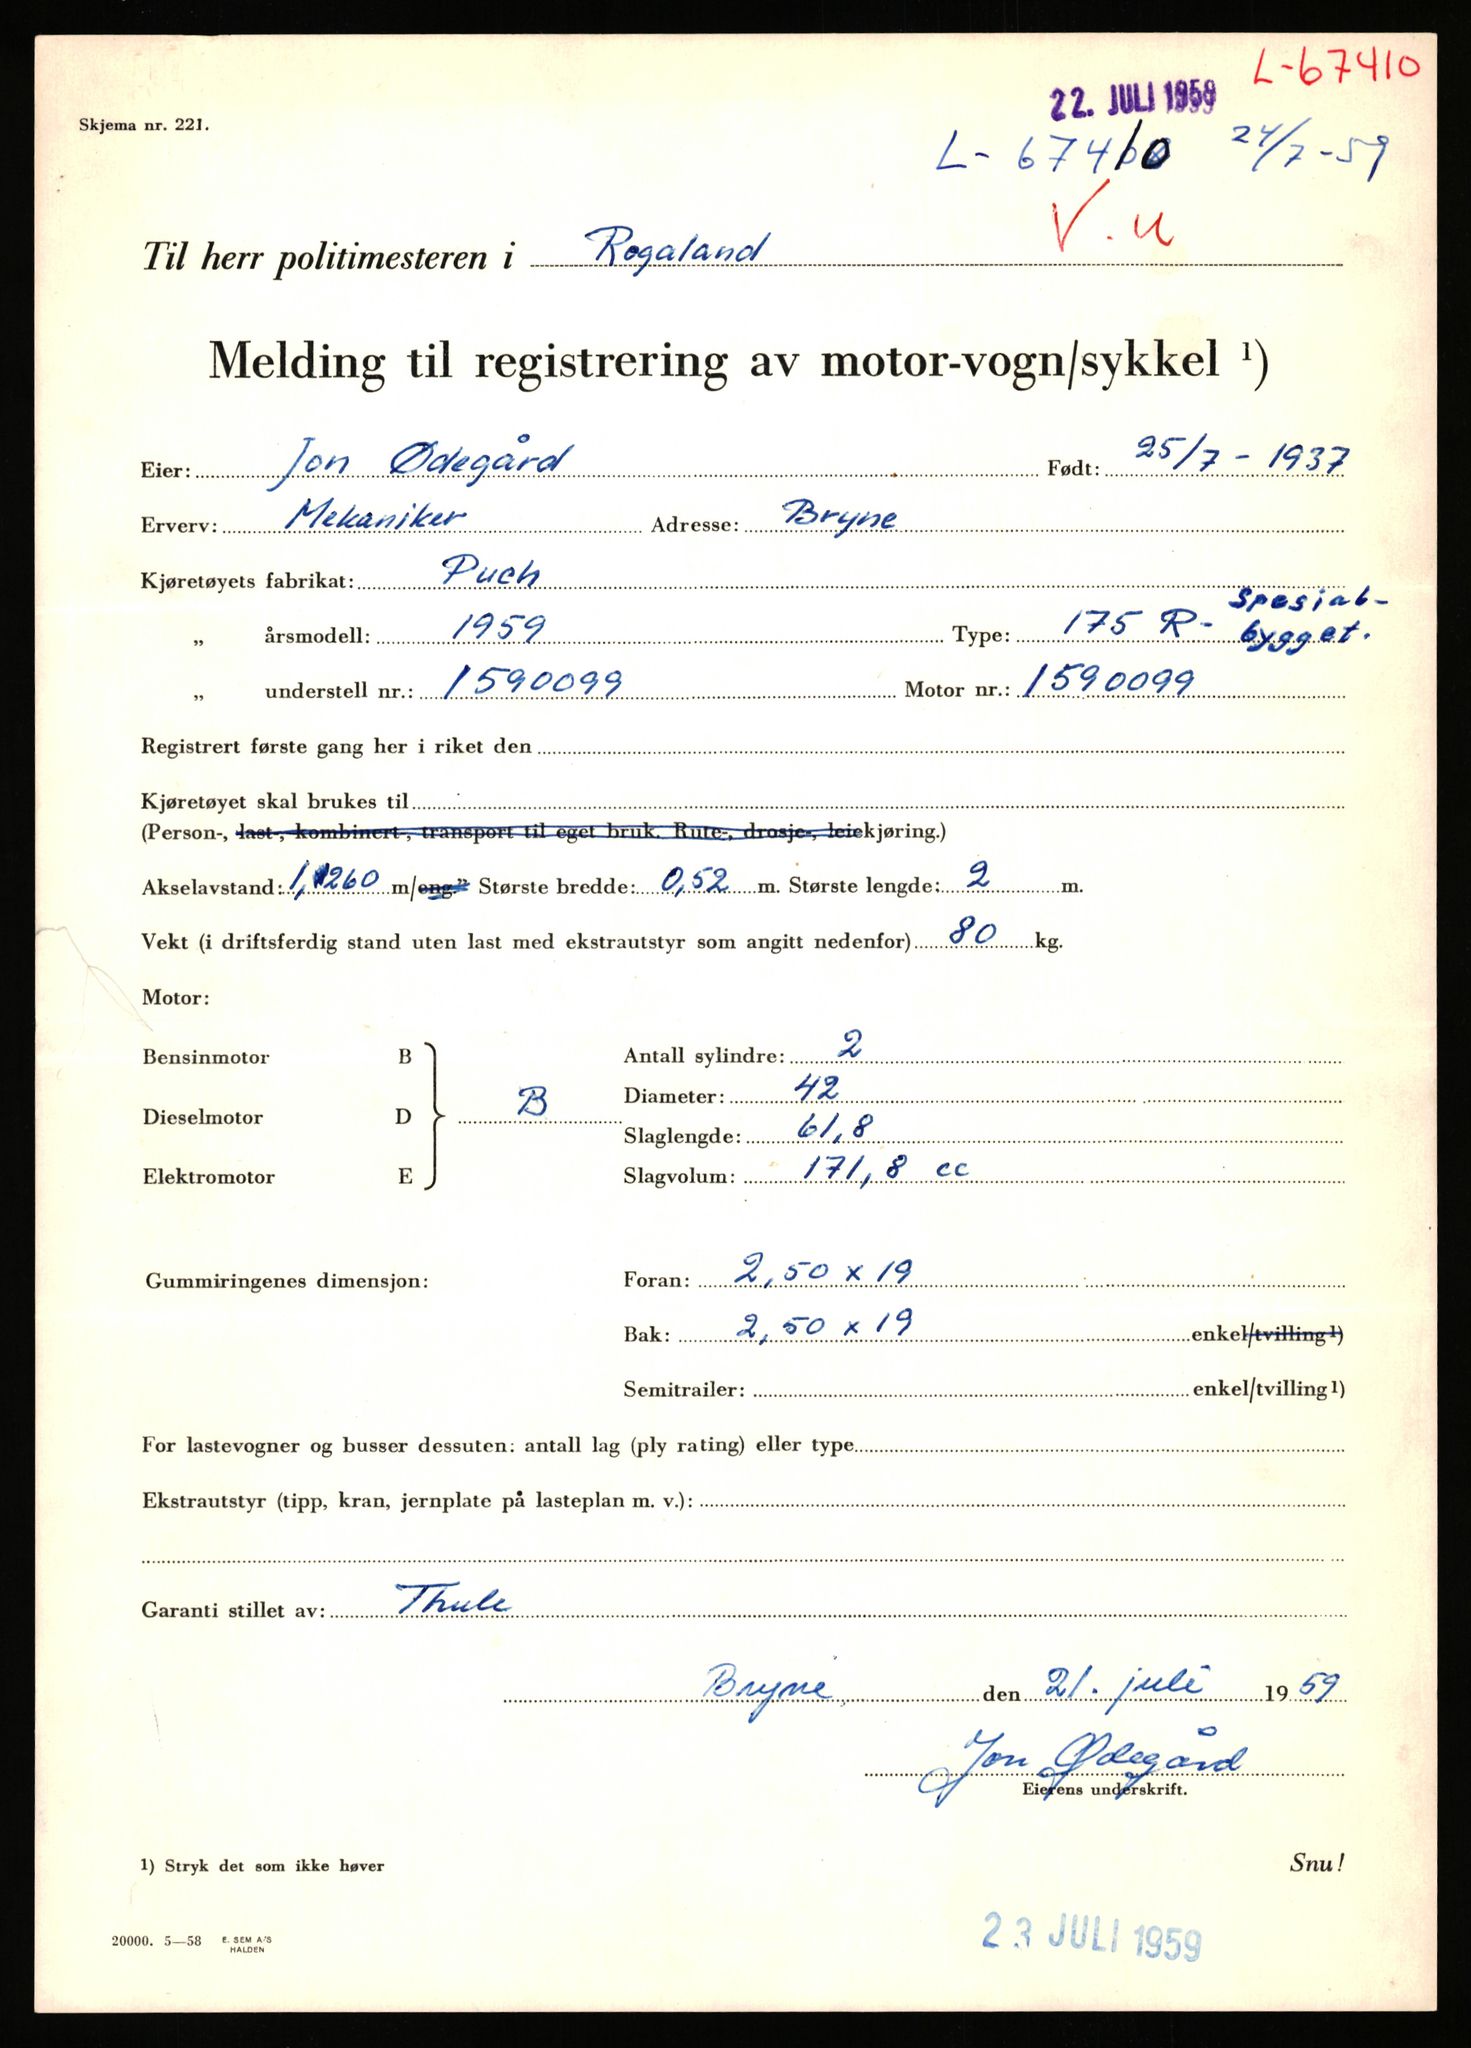 L-67410
22. JULI 1959
Skjema nr. 221.
L- 67410 24/7-59
V.u
Til herr politimesteren i Rogaland
Melding til registrering av motor-vogn/sykkel ¹)
Eier: Jon Ødegård Født: 25/7 - 1937
Erverv: Mekaniker Adresse: Bryne
Kjøretøyets fabrikat: Puch
„ årsmodell: 1959 Type: 175 R- Spesial-
bygget.
„ understell nr.: 1590099 Motor nr.: 1590099
Registrert første gang her i riket den
Kjøretøyet skal brukes til
(Person-, last-, kombinert-, transport til eget bruk. Rute-, drosje-, leiekjøring.)
Akselavstand: 1,260 m/eng." Største bredde: 0,52 m. Største lengde: 2 m.
Vekt (i driftsferdig stand uten last med ekstrautstyr som angitt nedenfor) 80 kg.
Motor:
Bensinmotor B Antall sylindre: 2
Diameter: 42
Dieselmotor D B
Slaglengde: 61,8
Elektromotor E Slagvolum: 171,8 cc
Gummiringenes dimensjon: Foran: 2,50 x 19
Bak: 2,50 x 19 enkel/tvilling¹)
Semitrailer: enkel/tvilling¹)
For lastevogner og busser dessuten: antall lag (ply rating) eller type
Ekstrautstyr (tipp, kran, jernplate på lasteplan m. v.):
Garanti stillet av: Thule
Bryne, den 21. juli 1959
Jon Ødegård
Eierens underskrift.
1) Stryk det som ikke høver Snu!
23 JULI 1959
20000. 5—58 E. SEM A/S
HALDEN